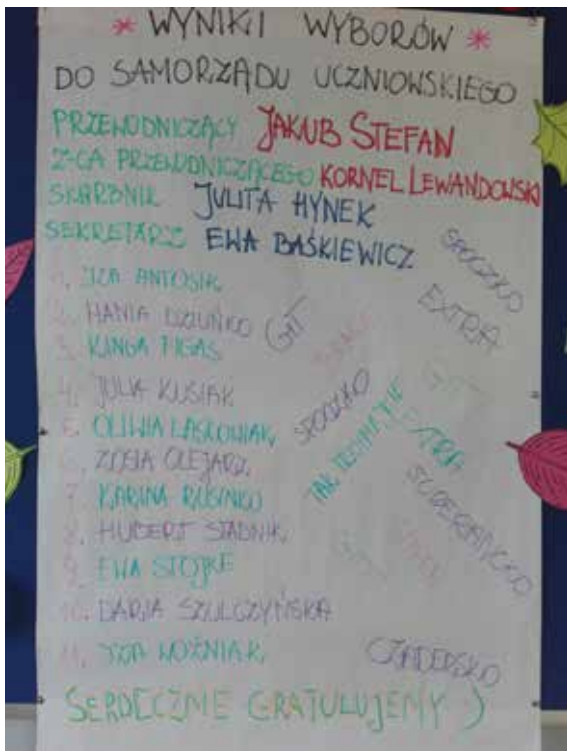 * WYNIKI WYBORÓW *
DO SAMORZĄDU UCZNIOWSKIEGO
PRZEWODNICZĄCY JAKUB STEFAN
Z-CA PRZEWODNICZĄCEGO KORNEL LEWANDOWSKI
SKARBNIK JULITA HYNEK
SEKRETARZ EWA BAŚKIEWICZ
1. IZA ANTOSIK
2. HANIA DZIUŃKO
3. KINGA FIGAS
4. JULIA KUSIAK
5. OLIWIA LASKOWIAK
6. ZOSIA OLEJARZ
7. KARINA RUSINKO
8. HUBERT STADNIK
9. EWA STOJKE
10. DARIA SZULCZYŃSKA
11. IZA WOŹNIAK
SPOCZKO
EXTRA
GIT
GIT
SPOCZKO
TAK TRZYMAJCIE
EXTRA
SUPERANCKO
GIT
CZADERSKO
SERDECZNIE GRATULUJEMY :)